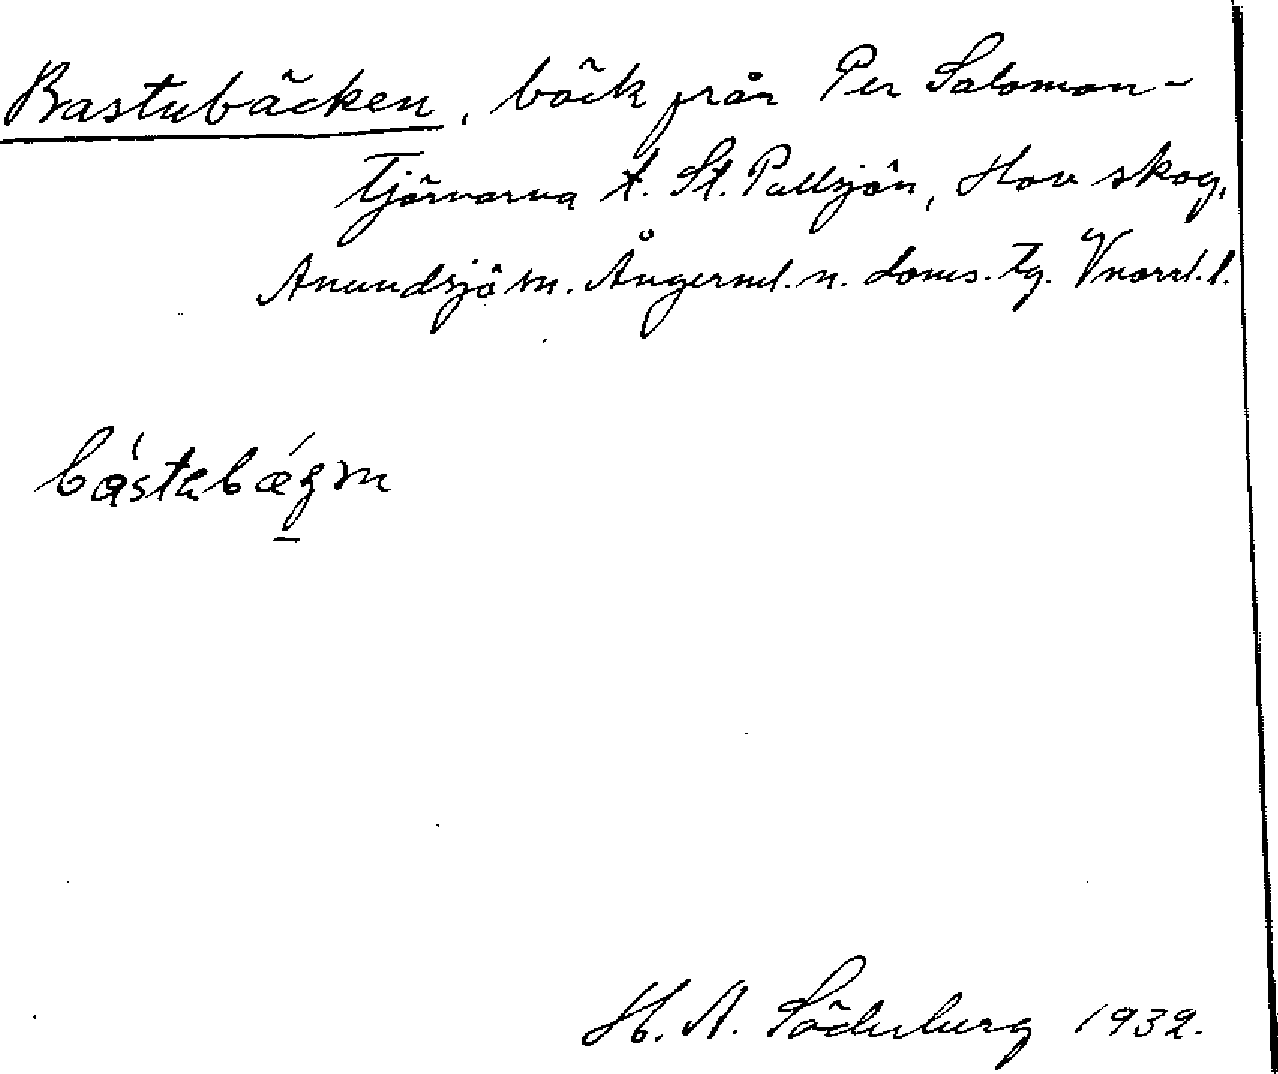 Bastubäcken, bäck från Per Salomon-
Tjärnarna t. St. Pallsjön, Hov skog,
Anundsjö sn. Ångerml. n. doms. tg. Vnorrl. l.
H. A. Söderberg 1932.